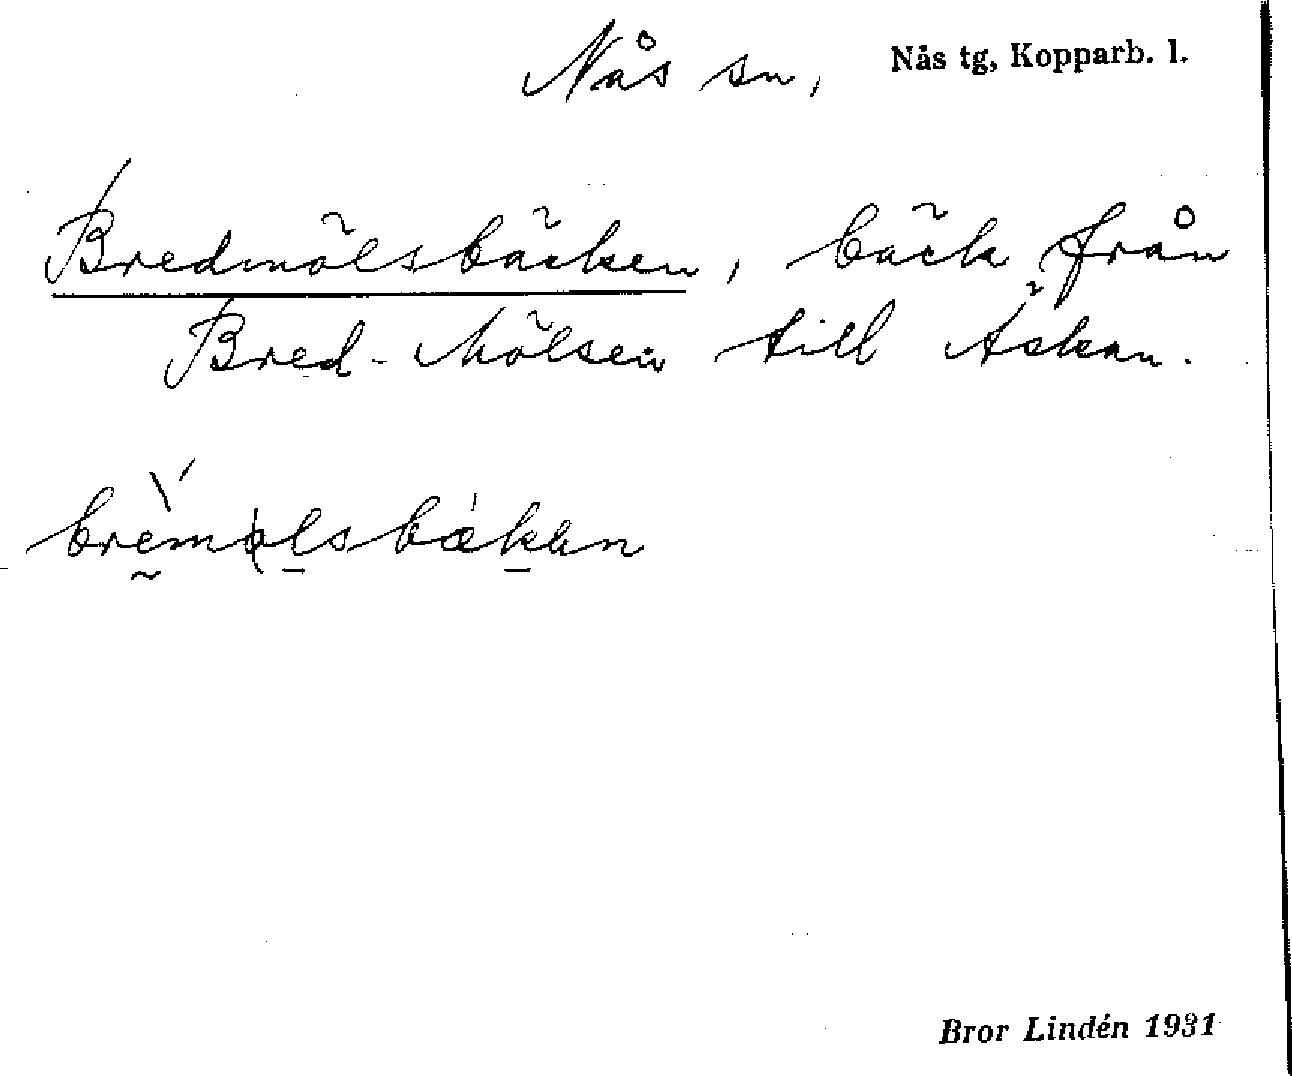 Nås sn, Nås tg, Kopparb. l.
Bredmölsbäcken, bäck från
Bred-Mölsen till Äskan.
Bror Lindén 1931